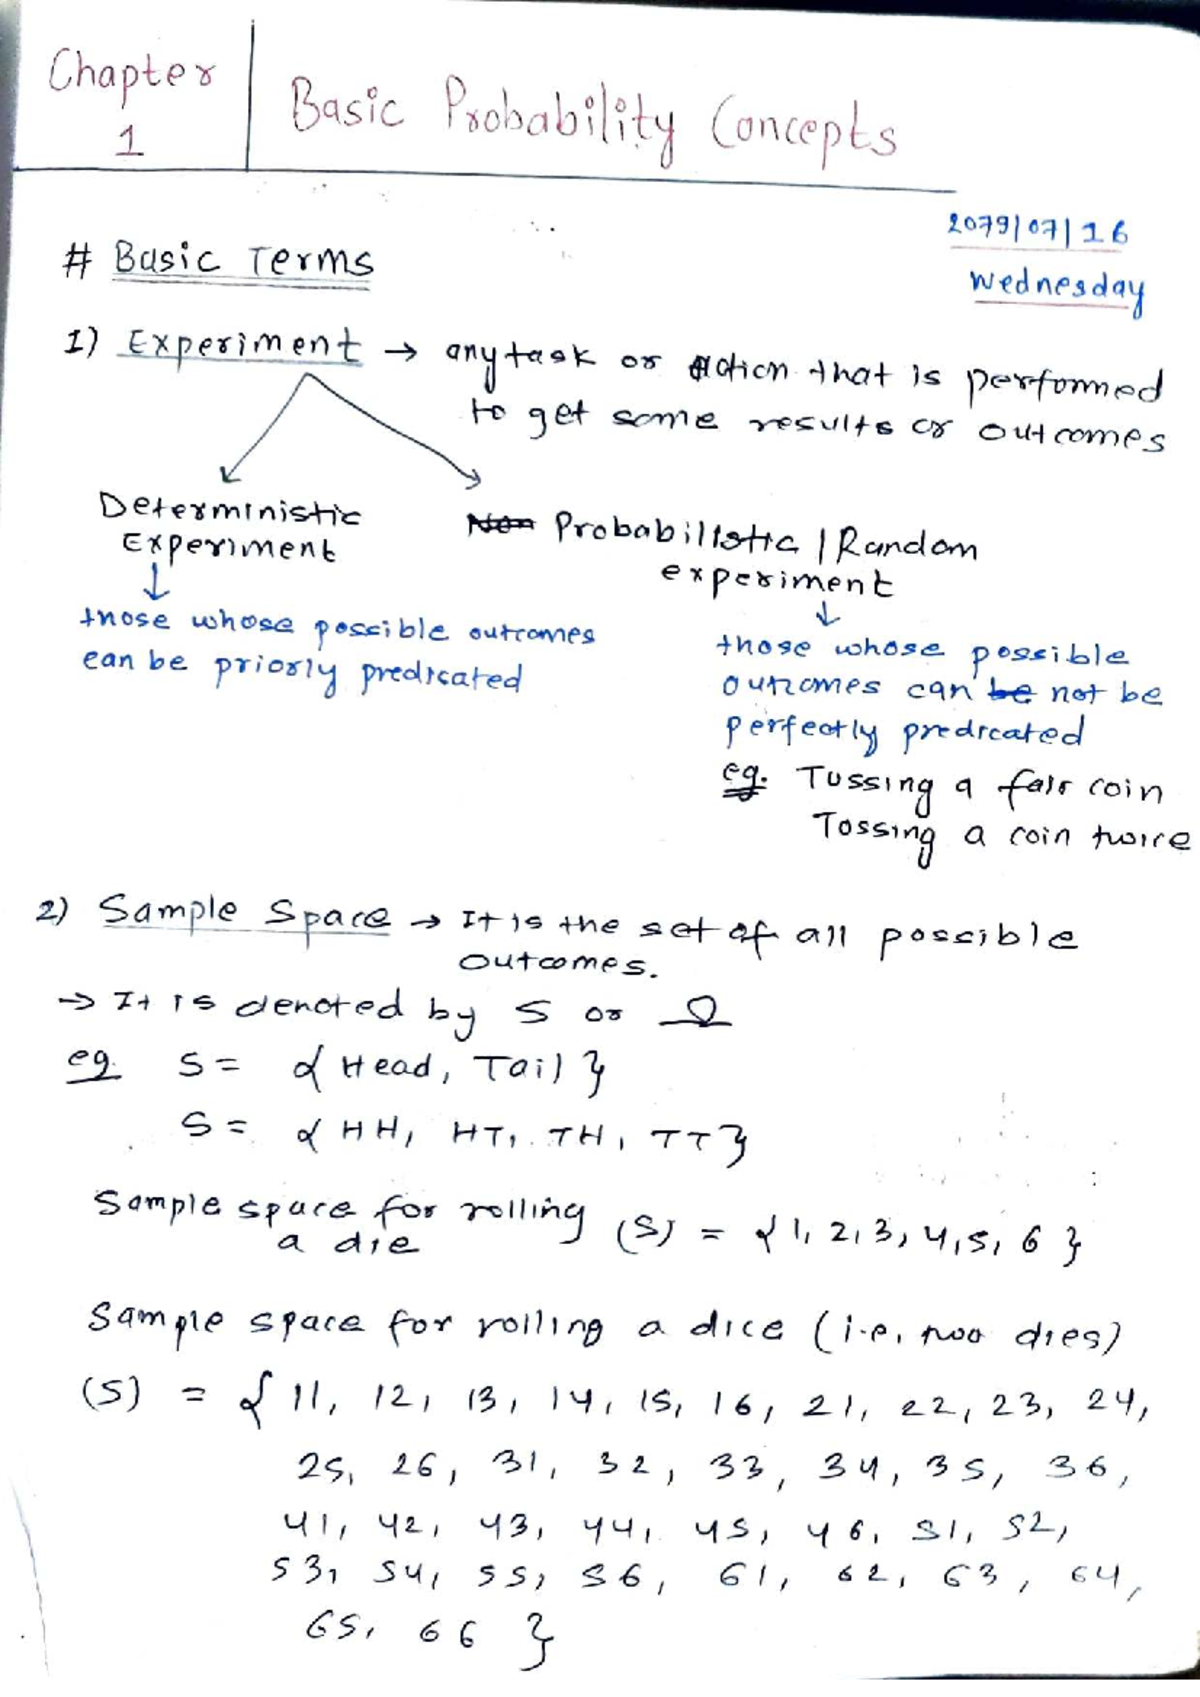 Chapter 1
Basic Probability Concepts
2079/07/16
Wednesday
# Basic Terms
1) Experiment → any task or action that is performed
to get some results or outcomes
Deterministic
Experiment
↓
those whose possible outcomes
can be priorly predicated
Non Probabilistic / Random
experiment
↓
those whose possible
outcomes can be not be
perfectly predicated
eg. Tossing a fair coin
Tossing a coin twice
2) Sample Space → It is the set of all possible
outcomes.
→ It is denoted by S or Ω
eg. S = { Head, Tail }
S = { HH, HT, TH, TT }
Sample space for rolling
a die
(S) = { 1, 2, 3, 4, 5, 6 }
Sample space for rolling a dice (i.e. two dies)
(S) = { 11, 12, 13, 14, 15, 16, 21, 22, 23, 24,
25, 26, 31, 32, 33, 34, 35, 36,
41, 42, 43, 44, 45, 46, 51, 52,
53, 54, 55, 56, 61, 62, 63, 64,
65, 66 }